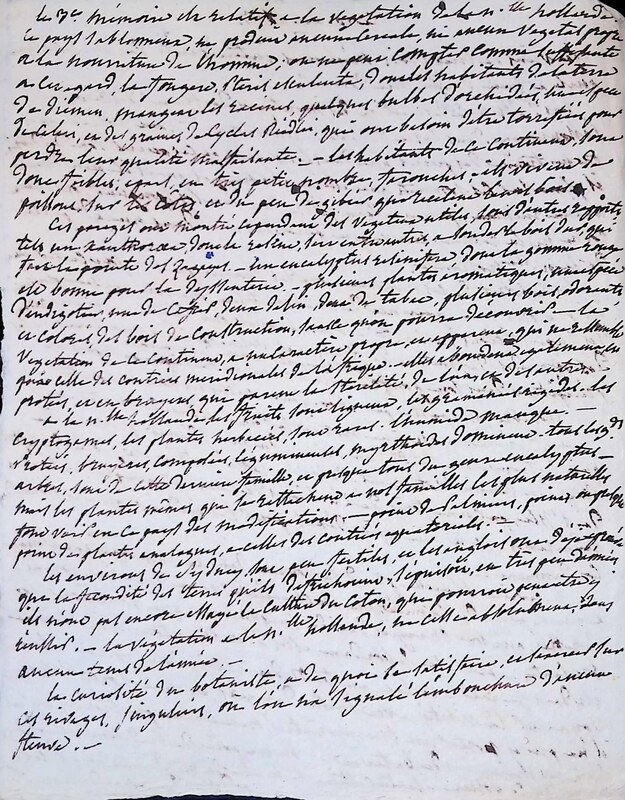 le 3e Mémoire est relatif a la vegetation de la n.lle hollande.
ce pays sablonneux, ne produit aucune cereale, ni aucun vegetal propre
a la nourriture de l'homme, on ne peut compter comme
a cet egard, la fougere, pteris esculenta, dont les habitants de la terre
de diemen, mangent les racines, quelques bulbes d'orchidées, une espece
de celeri, et des graines de Cyclas, qui ont besoin d'être torrefiées pour
perdre leur qualité malfaisante. — les habitants de ce Continent, sont
donc foibles, epars, en très petit nombre, farouches — ils vivent de
poissons, sur les côtes et du peu de gibier que recelent les bois.
Ces parages ont montré cependant des vegetaux utiles, sous d'autres rapports
tels un dont la resine, sert entre autres, a souder le bois dur qui
fait la pointe des Zagayes. — un eucalyptus resinifera dont la gomme rouge
est bonne pour la dyssenterie — plusieurs plantes aromatiques, une espèce
d'indigotier, une de deux de lin, deux de tabac, plusieurs bois, odorants
et colorés des bois de construction, sans ce qu'on pourra decouvrir — la
vegetation de ce Continent, a un caractere propre, et apparent, qui ne ressemble
qu'à celle des contrées meridionales de l'afrique. — elles abondent egalement en
protées, et en bruyeres que parent la sterilité, de l'une et des autres.
a la n.lle hollande les fruits sont ligneux, les graminées rigides. les
cryptogames, les plantes herbacées, sont rares. l'humidité manque. —
Protées, bruyeres, composées, legumineuses, myrthoïdes dominent. tous les gds
arbres, sont de cette derniere famille, et presque tous du genre eucalyptus —
mais les plantes mêmes qui se rattachent a nos familles les plus naturelles
font voir en ce pays des modifications. — point de Palmiers, point ou presque
point de plantes analogues, a celles des contrées equatoriales. —
les environs de Sydney sont peu fertiles, et les anglois ont deja eprouvé
que la fecondité des terres qu'ils defrichent s'epuisoit, en très peu d'années
ils n'ont pas encore essayé la Culture du Coton, qui pourroit peut etre y
reussir. — la vegetation a la n.lle hollande, ne cesse absolument dans
aucun tems de l'année. —
la curiosité du botaniste, a de quoi se satisfaire, et s'exercer sur
ces rivages, singuliers, où l'on n'a signalé l'embouchure d'aucun
fleuve. —